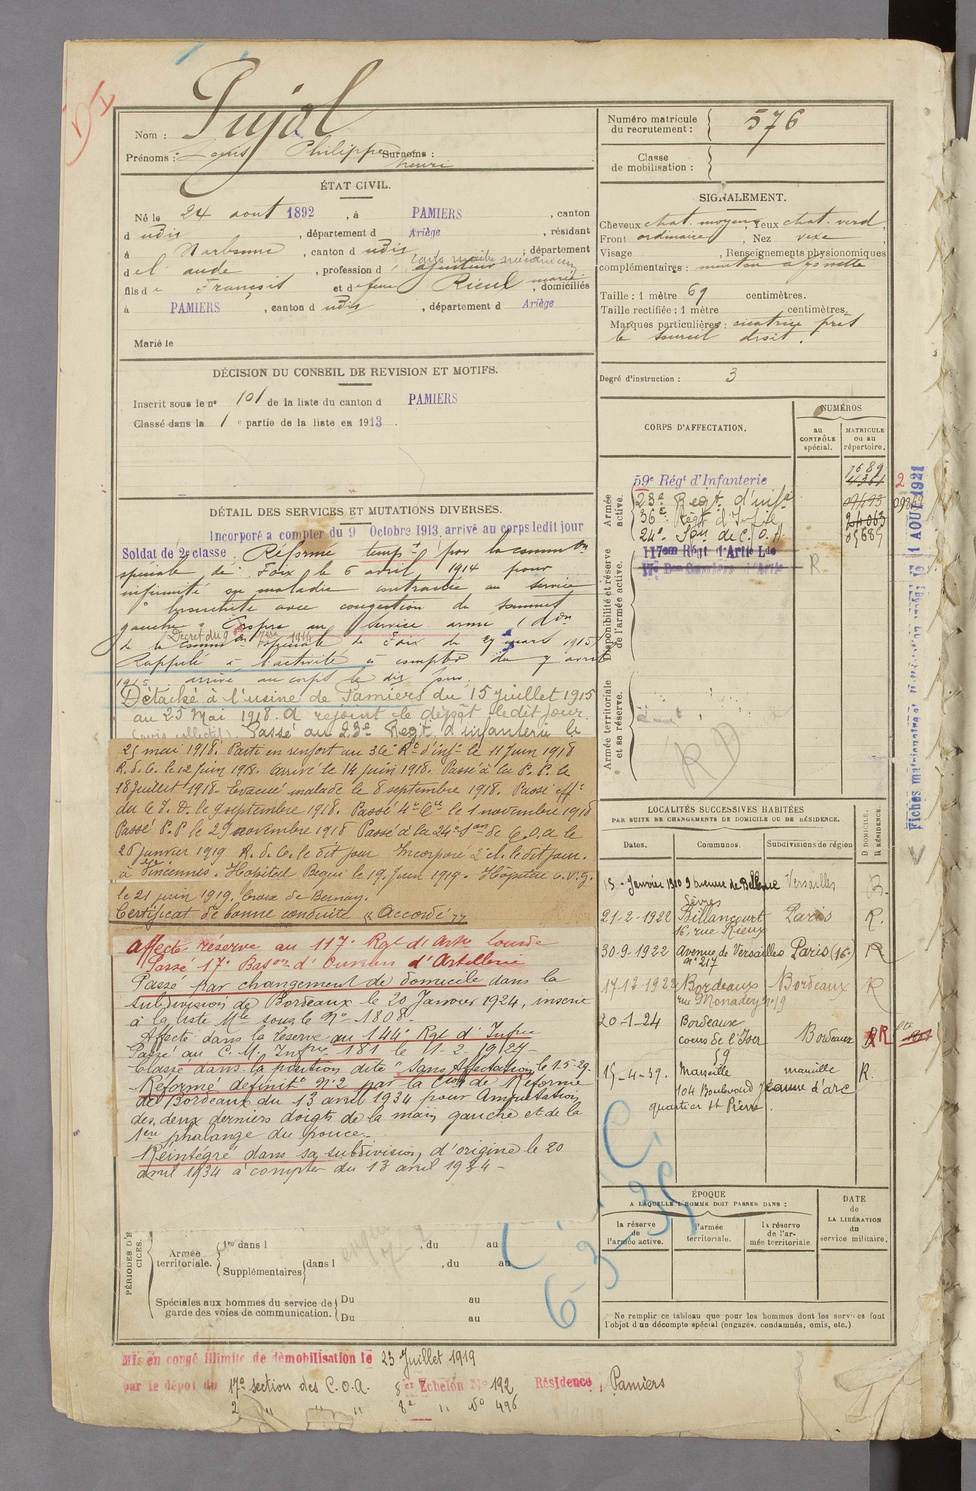 Nom : Pujol
Prénoms : Louis Philippe Surnoms : henri
ÉTAT CIVIL.
Né le 24 aout 1892, à PAMIERS, canton
d udis, département d Ariège, résidant
à Narbonne, canton d udis, département
de l'aude, profession d ajusteur
fils de François et de feue Rieul marie, domiciliés
à PAMIERS, canton d udis, département d Ariège
Marié le
DÉCISION DU CONSEIL DE REVISION ET MOTIFS.
Inscrit sous le n° 101 de la liste du canton d PAMIERS
Classé dans la 1e partie de la liste en 1913.
DÉTAIL DES SERVICES ET MUTATIONS DIVERSES.
Incorporé a compter du 9 Octobre 1913 arrivé au corps ledit jour
Soldat de 2e classe. Réformé tempre par la common
spéciale de Foix le 6 avril 1914 pour
infirmité ou maladie contractée au service
"bronchite avec congestion du sommet
gauche". Propre au service armé (don
de la Common spéciale de Foix du 27 mars 1915)
Rappelé à l'activité à compter du 7 avril
1915 arrivé au corps le dit jour.
Détaché à l'usine de Pamiers du 15 juillet 1915
au 25 Mai 1918. A rejoint le dépôt ledit jour.
Passé au 23e Regt. d'infanterie le
25 mai 1918. Parti en renfort au 36e Rt d'infie le 11 juin 1918
A. d. C. le 12 juin 1918. Arrivé le 14 juin 1918. Passé à la P. P. le
18 juillet 1918. Evacué malade le 8 septembre 1918. Passé effie
du C. I. D. le 9 septembre 1918. Passé 4e Cie le 1 novembre 1918
Passé P.P le 29 novembre 1918 Passé à la 24e Son de C.O.A le
26 janvier 1919 A. d. C. le dit jour Incorporé 2e él. le dit jour.
à Vincennes. Hopital Begin le 19 juin 1919. Hopital V. V. G.
le 21 juin 1919. Croix de Bernay.
Certificat de bonne conduite "Accordé"
Affecté Réserve au 117e Rgt d'Artie lourde
Passé 17e Baton d'Ouvriers d'Artillerie
Passé par changement de domicile dans la
subdivision de Bordeaux le 20 Janvier 1924, inscrit
à la liste Mle sous le No 1808
Affecté dans la réserve au 144e Rgt d'Infrie
Passé au C. M. Infrie 181 le 11. 2. 1927
Classé dans la position dite "Sans Affectation" le 1.5.29.
Réformé définitif n° 2 par la Con de Réforme
de Bordeaux du 13 avril 1934 pour Amputation
des deux derniers doigts de la main gauche et de la
1ère phalange du pouce.
Réintégré dans sa subdivision d'origine le 20
avril 1934 à compter du 13 avril 1934
PÉRIODES D'EXERCICES.
Armée territoriale.
1re dans l , du au
Supplémentaires dans l , du au
Spéciales aux hommes du service de garde des voies de communication.
Du au
Du au
Mis en congé illimité de démobilisation le 23 Juillet 1919
par le dépôt du 17e section des C.O.A. 8e Echelon N° 192 Résidence : Pamiers
2 " " " 8e " No 496
Numéro matricule du recrutement : 576
Classe de mobilisation :
SIGNALEMENT.
Cheveux chat. moyens, Yeux chat. verd,
Front ordinaire, Nez vexe,
Visage , Renseignements physionomiques
complémentaires : menton à fossette
Taille : 1 mètre 69 centimètres.
Taille rectifiée : 1 mètre centimètres.
Marques particulières : cicatrice près
le sourcil droit.
Degré d'instruction : 3
CORPS D'AFFECTATION.
NUMÉROS
au CONTRÔLE spécial.
MATRICULE ou au répertoire.
Armée active.
59e Régt d'Infanterie
23e Regt. d'infie
36e Regt d'Infie
24e Son de C. O. A.
Disponibilité et réserve de l'armée active.
117em Régt d'Artie Lde
17e Bon Ouvriers d'Artie
R
Armée territoriale et sa réserve.
RD
LOCALITÉS SUCCESSIVES HABITÉES
PAR SUITE DE CHANGEMENTS DE DOMICILE OU DE RÉSIDENCE.
Dates. Communes. Subdivisions de région
D DOMICILE. R RÉSIDENCE.
15 - Janvier 1920 9 avenue de Bellevue Sèvres Versailles R.
21-2-1922 Billancourt 16, rue Rieux Paris R.
30-9-1922 Avenue de Versailles n° 217 Paris (16e) R
17-12-1922 Bordeaux rue Monadey n° 19 Bordeaux R
20-1-24 Bordeaux cours de l'Yser 59 Bordeaux R
15-4-39. Marseille marseille R.
104 Boulevard Jeanne d'arc
quartier St Pierre.
ÉPOQUE
A LAQUELLE L'HOMME DOIT PASSER DANS :
la réserve de l'armée active.
l'armée territoriale.
la réserve de l'armée territoriale.
DATE DE LA LIBÉRATION du service militaire.
Ne remplir ce tableau que pour les hommes dont les services font l'objet d'un décompte spécial (engagés, condamnés, omis, etc.)